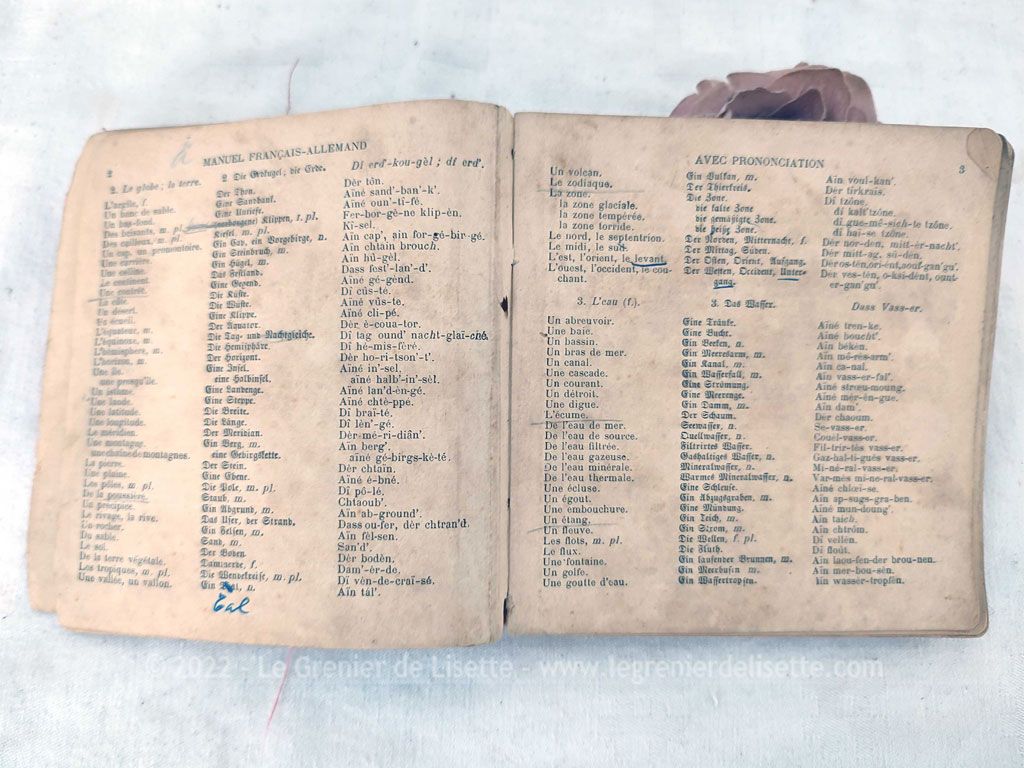 2 MANUEL FRANÇAIS-ALLEMAND
2. Le globe; la terre. 2. Die Erdkugel; die Erde. Di erd'-kou-gèl; di erd'.
L'argile, f. Der Thon. Dèr tôn.
Un banc de sable. Eine Sandbank. Aïné sand'-ban'-k'.
Un bas-fond. Eine Untiefe. Aïné oun'-tî-fé.
Des brisants, m. pl. Klippen, f. pl. Fer-bor-gê-ne klip-èn.
Des cailloux, m. pl. Kiesel, m. pl. Ki-sel.
Un cap, un promontoire. Ein Cap, ein Vorgebirge, n. Aïn cap', aïn for-gé-bir-gé.
Une carrière. Ein Steinbruch, m. Aïn chtaïn brouch.
Une colline. Ein Hügel, m. Aïn hû-gèl.
Le continent. Das Festland. Dass fest'-lan'-d'.
Une contrée. Eine Gegend. Aïné gé-gènd.
La côte. Die Küste. Dî cüs-té.
Un désert. Die Wüste. Aïné vüs-te.
Un écueil. Eine Klippe. Aïné cli-pé.
L'équateur, m. Der Äquator. Dèr è-coua-tor.
L'équinoxe, m. Die Tag- und Nachtgleiche. Dî tag ound' nacht-glaï-ché.
L'hémisphère, m. Die Hemisphäre. Dî hé-mis-fèré.
L'horizon, m. Der Horizont. Dèr ho-ri-tson'-t'.
Une île. Eine Insel. Aïné in'-sel.
une presqu'île. eine Halbinsel. aïné halb'-in'-sèl.
Un isthme. Eine Landenge. Aïné lan'd-èn-gé.
Une lande. Eine Steppe. Aïné chtè-ppé.
Une latitude. Die Breite. Dî braï-té.
Une longitude. Die Länge. Dî lèn'-gé.
Le méridien. Der Meridian. Dèr mé-ri-diân'.
Une montagne. Ein Berg, m. Aïn berg'.
une chaîne de montagnes. eine Gebirgskette. aïné gé-birgs-kè-té.
La pierre. Der Stein. Dèr chtaïn.
Une plaine. Eine Ebene. Aïné é-bné.
Les pôles, m. pl. Die Pole, m. pl. Dî pô-lé.
De la poussière. Staub, m. Chtaoub'.
Un précipice. Ein Abgrund, m. Aïn ab-ground'.
Le rivage, la rive. Das Ufer, der Strand. Dass ou-fer, dèr chtran'd.
Un rocher. Ein Felsen, m. Aïn fèl-sen.
Du sable. Sand, m. San'd'.
Le sol. Der Boden. Dèr bodèn.
De la terre végétale. Dammerde, f. Dam'-èr-de.
Les tropiques, m. pl. Die Wendekreise, m. pl. Dî vèn-de-craï-sé.
Une vallée, un vallon. Ein Thal, n. Aïn tâl'.
Tal
AVEC PRONONCIATION 3
Un volcan. Ein Vulkan, m. Aïn voul-kan'.
Le zodiaque. Der Thierkreis. Dèr tirkraïs.
La zone. Die Zone. Dî tzône.
la zone glaciale. die kalte Zone. dî kalt'tzône.
la zone tempérée. die gemäßigte Zone. di gue-mê-sich-te tzône.
la zone torride. die heiße Zone. di haï-se tzône.
Le nord, le septentrion. Der Norden, Mitternacht, f. Dèr nor-den, mitt-èr-nacht'.
Le midi, le sud. Der Mittag, Süden. Dèr mitt-ag, sü-dèn.
L'est, l'orient, le levant. Der Osten, Orient, Aufgang. Dèr os-tèn, ori-ènt, aouf-gan'gu'.
L'ouest, l'occident, le couchant. Der Westen, Occident, Untergang. Dèr ves-tèn, o-ksi-dènt, ount-er-gan'gu'.
3. L'eau (f.). 3. Das Wasser. Dass Vass-er.
Un abreuvoir. Eine Tränke. Aïné tren-ke.
Une baie. Eine Bucht. Aïné boucht'.
Un bassin. Ein Becken, n. Aïn békèn.
Un bras de mer. Ein Meeresarm, m. Aïn mé-rès-arm'.
Un canal. Ein Kanal, m. Aïn ca-nal.
Une cascade. Ein Wasserfall, m. Aïn vass-er-fal'.
Un courant. Eine Strömung. Aïné strœu-moung.
Un détroit. Eine Meerenge. Aïné mér-èn-gue.
Une digue. Ein Damm, m. Aïn dam'.
L'écume. Der Schaum. Dèr chaoum.
De l'eau de mer. Seewasser, n. Se-vass-er.
De l'eau de source. Quellwasser, n. Couèl-vass-or.
De l'eau filtrée. Filtrirtes Wasser. Fil-trir-tès vass-er.
De l'eau gazeuse. Gashaltiges Wasser, n. Gaz-hal-ti-gués vass-er.
De l'eau minérale. Mineralwasser, n. Mi-né-ral-vass-er.
De l'eau thermale. Warmes Mineralwasser, n. Var-mès mi-ne-ral-vass-er.
Une écluse. Eine Schleuse. Aïné chlœi-se.
Un égout. Ein Abzugsgraben, m. Aïn ap-sugs-gra-ben.
Une embouchure. Eine Mündung. Aïné mun-doung'.
Un étang. Ein Teich, m. Aïn taïch.
Un fleuve. Ein Strom, m. Aïn chtröm.
Les flots, m. pl. Die Wellen, f. pl. Dî vellèn.
Le flux. Die Fluth. Dî floût.
Une fontaine. Ein laufender Brunnen, m. Aïn laou-fen-der brou-nen.
Un golfe. Ein Meerbusen, m. Aïn mer-bou-sèn.
Une goutte d'eau. Ein Wassertropfen. Aïn wasser-tropfèn.
© 2022 - Le Grenier de Lisette - www.legrenierdelisette.com